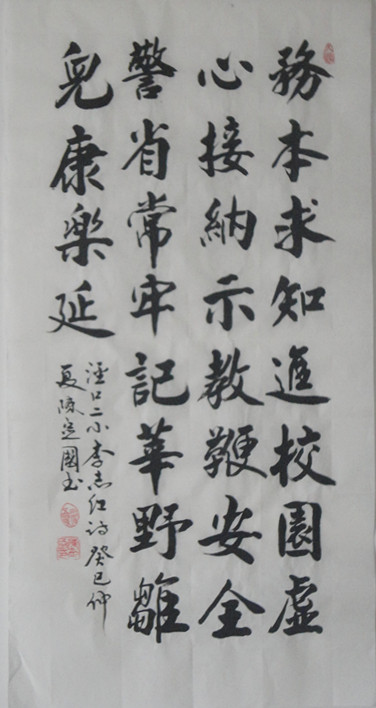 務本求知進校園虛
心接納示教鞭安全
警省常牢記華野雛
兒康樂延
涇口二小李志紅詩癸巳仲
夏陳定國书